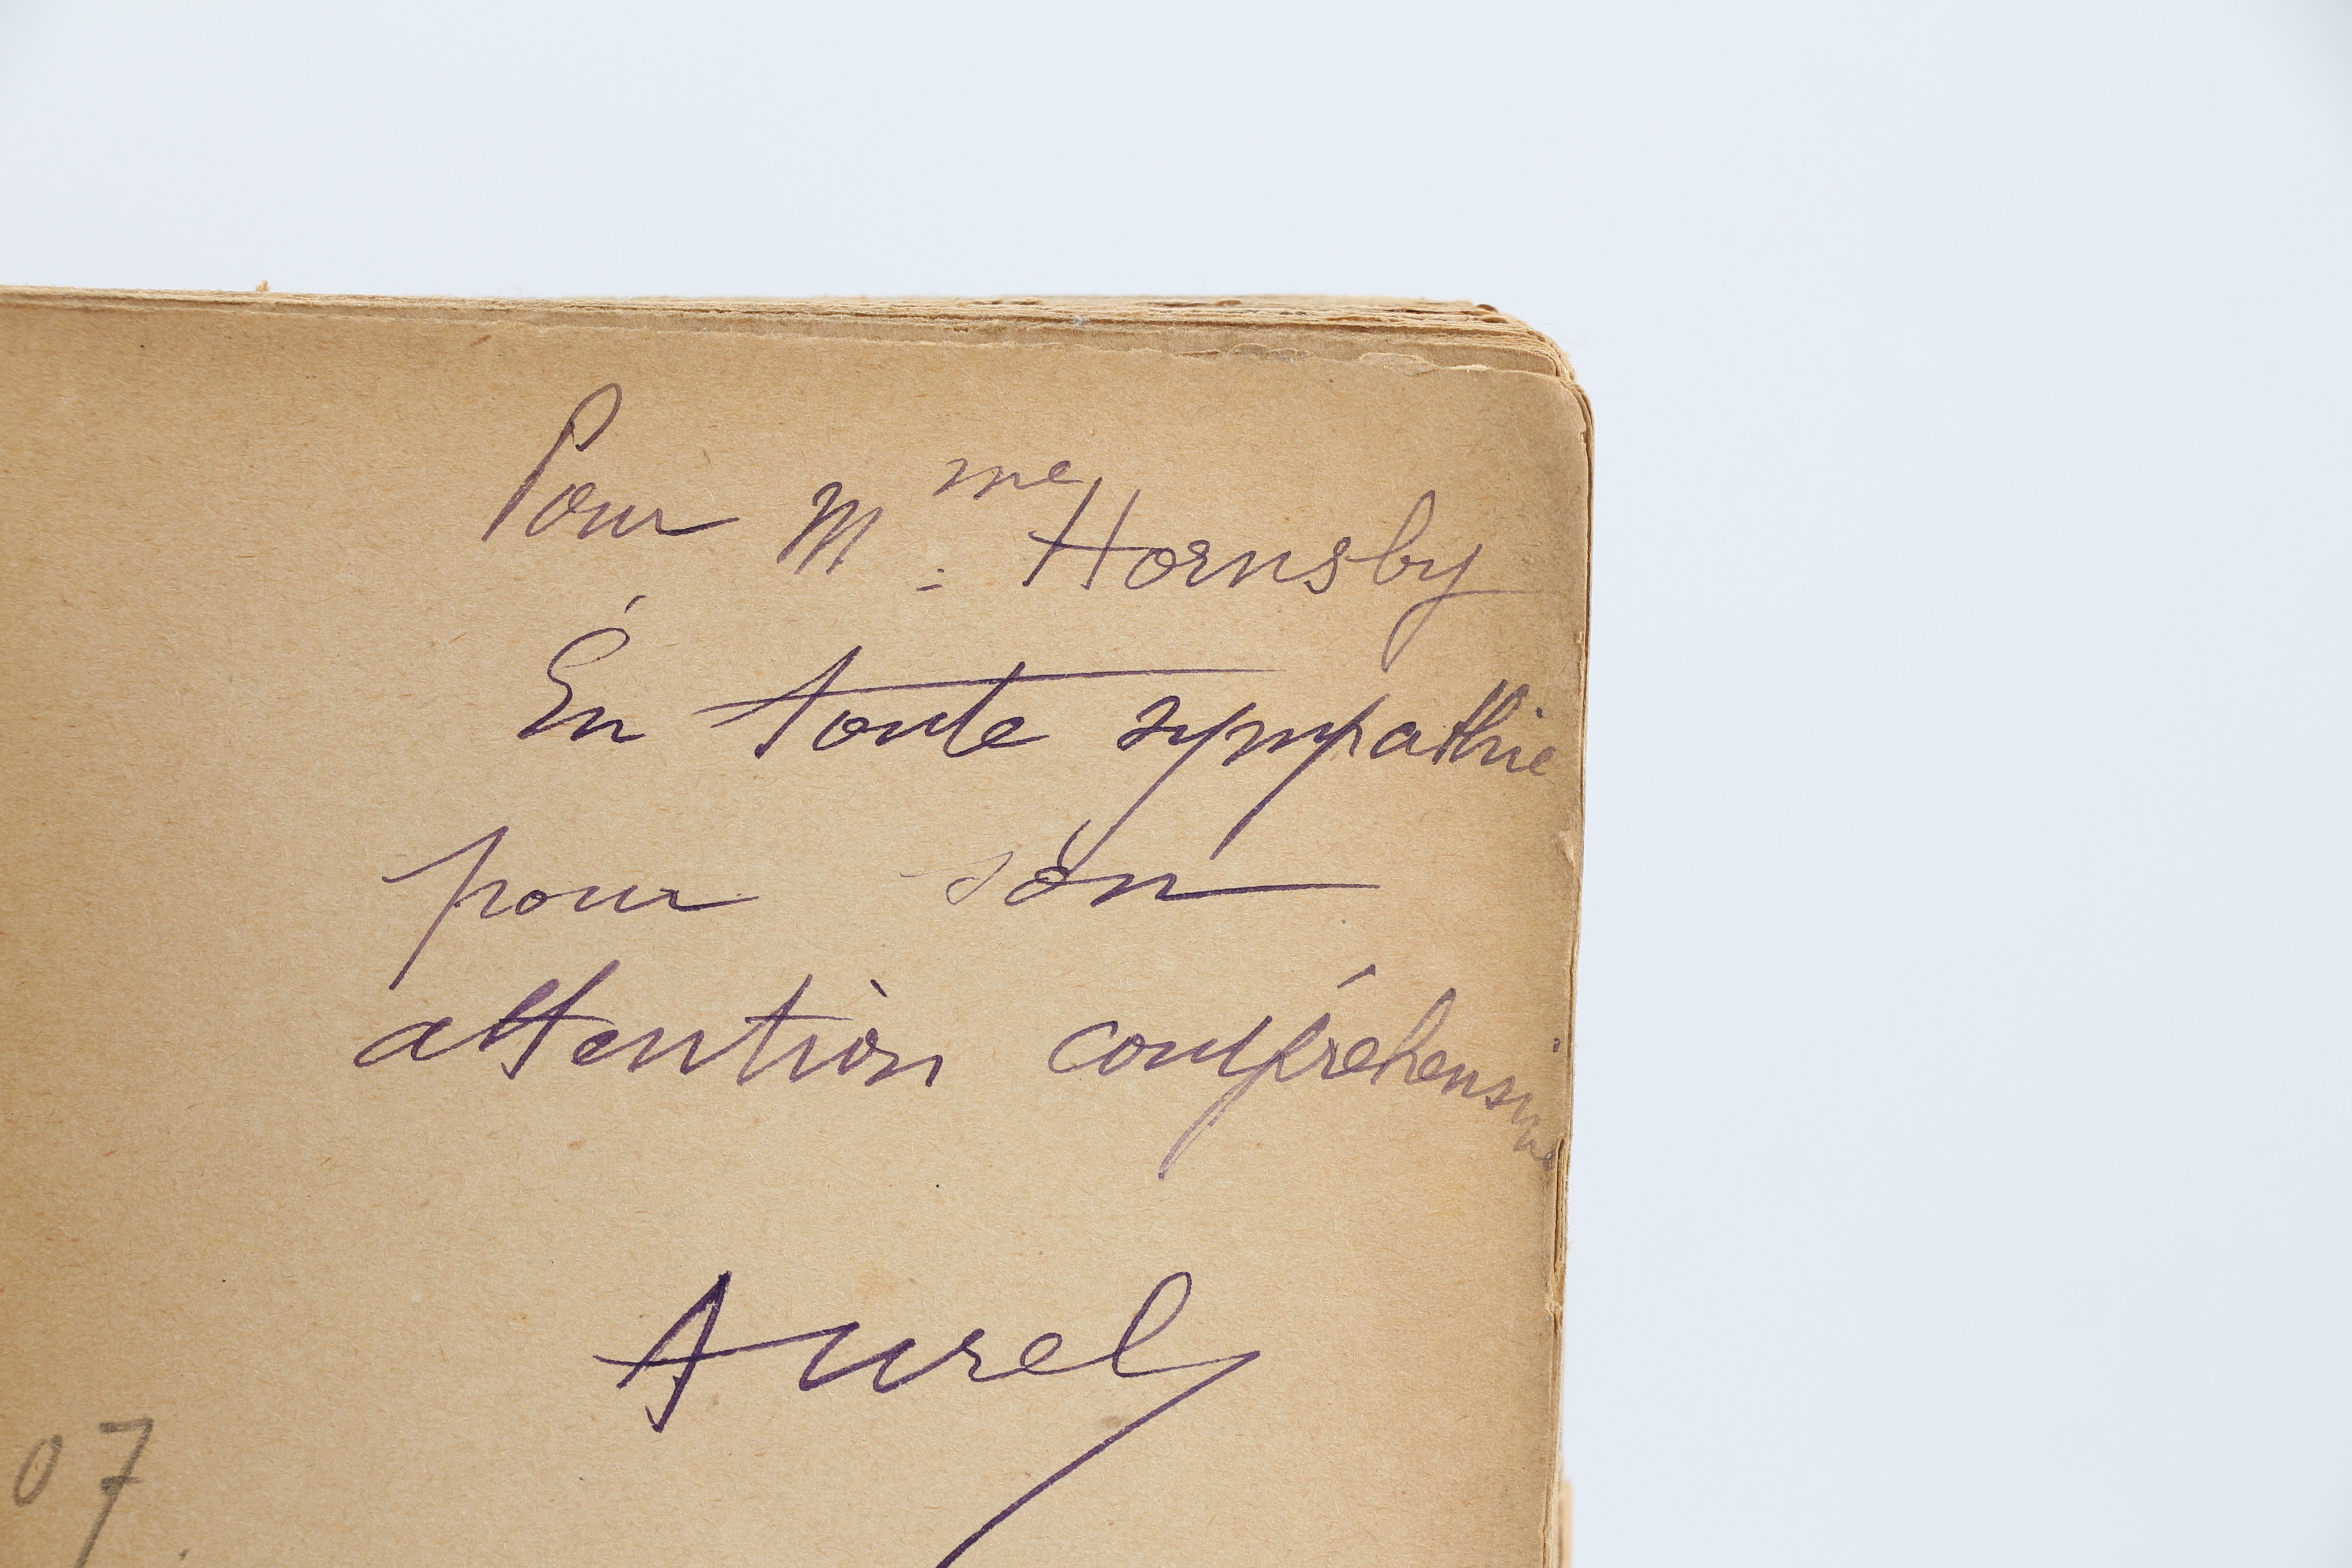 Pour Mme Hornsby
En toute sympathie
pour son
attention compréhensive
Aurel
07